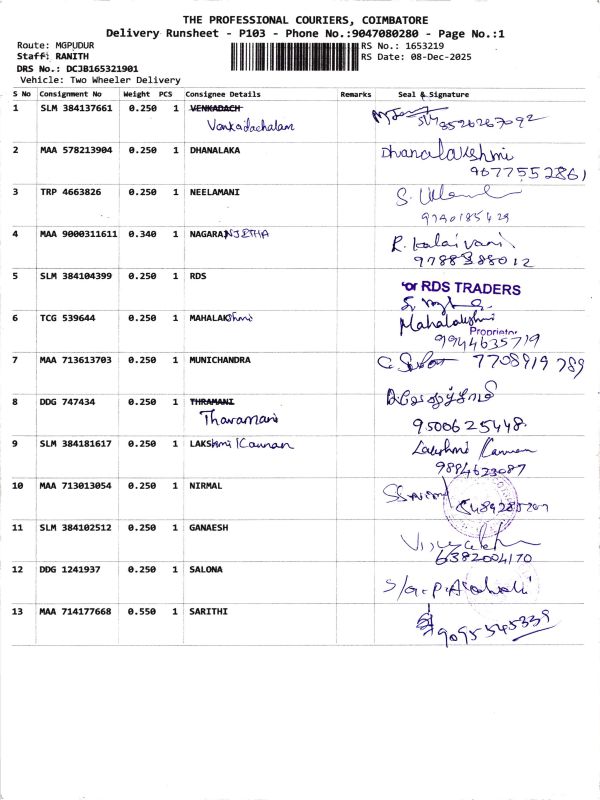 THE PROFESSIONAL COURIERS, COIMBATORE
Delivery Runsheet - P103 - Phone No.:9047080280 - Page No.:1
Route: MGPUDUR RS No.: 1653219
Staff: RANITH RS Date: 08-Dec-2025
DRS No.: DCJB165321901
Vehicle: Two Wheeler Delivery
S No Consignment No Weight PCS Consignee Details Remarks Seal & Signature
1 SLM 384137661 0.250 1 VENKADACH
Venkadachalam 8526267092
2 MAA 578213904 0.250 1 DHANALAKA Dhanalakshmi
9677552861
3 TRP 4663826 0.250 1 NEELAMANI S.
9790185429
4 MAA 9000311611 0.340 1 NAGARANJETHA R. kalaivani
9788388012
5 SLM 384104399 0.250 1 RDS For RDS TRADERS
6 TCG 539644 0.250 1 MAHALAKShmi Mahalakshmi
Proprietor
9944635719
7 MAA 713613703 0.250 1 MUNICHANDRA 7708919789
8 DDG 747434 0.250 1 THRAMANI
Tharamani 9500625448.
9 SLM 384181617 0.250 1 LAKShmi Kannan Lakshmi Kannan
9894623087
10 MAA 713013054 0.250 1 NIRMAL
11 SLM 384102512 0.250 1 GANAESH
6382004170
12 DDG 1241937 0.250 1 SALONA
13 MAA 714177668 0.550 1 SARITHI
9095545339